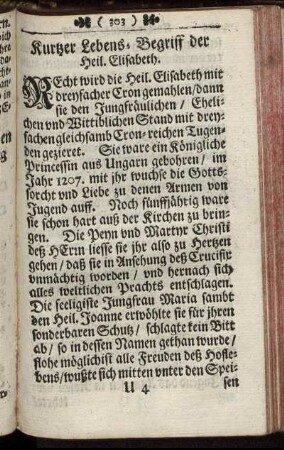 ( 303 )
Kurtzer Lebens-Begriff der
Heil. Elisabeth.
REcht wird die Heil. Elisabeth mit
dreyfacher Cron gemahlen/dann
sie den Jungfräulichen/ Eheli-
chen und Wittiblichen Stand mit drey-
fachen gleichsamb Cron-reichen Tugen-
den gezieret. Sie ware ein Königliche
Princessin aus Ungarn gebohren/ im
Jahr 1207. mit jhr wuchse die Gotts-
forcht und Liebe zu denen Armen von
Jugend auff. Noch fünffjährig ware
sie schon hart auß der Kirchen zu brin-
gen. Die Peyn und Martyr Christi
deß HErrn liesse sie jhr also zu Hertzen
gehen/ daß sie in Ansehung deß Crucifix
vnmächtig worden/ und hernach sich
alles weltlichen Prachts entschlagen.
Die seeligiste Jungfrau Maria sambt
den Heil. Joanne erwöhlte sie für jhren
sonderbaren Schutz/ schlagte kein Bitt
ab/ so in dessen Namen gethan wurde/
flohe möglichist alle Freuden deß Hofle-
bens/wußte sich mitten vnter den Spei-
U 4 sen